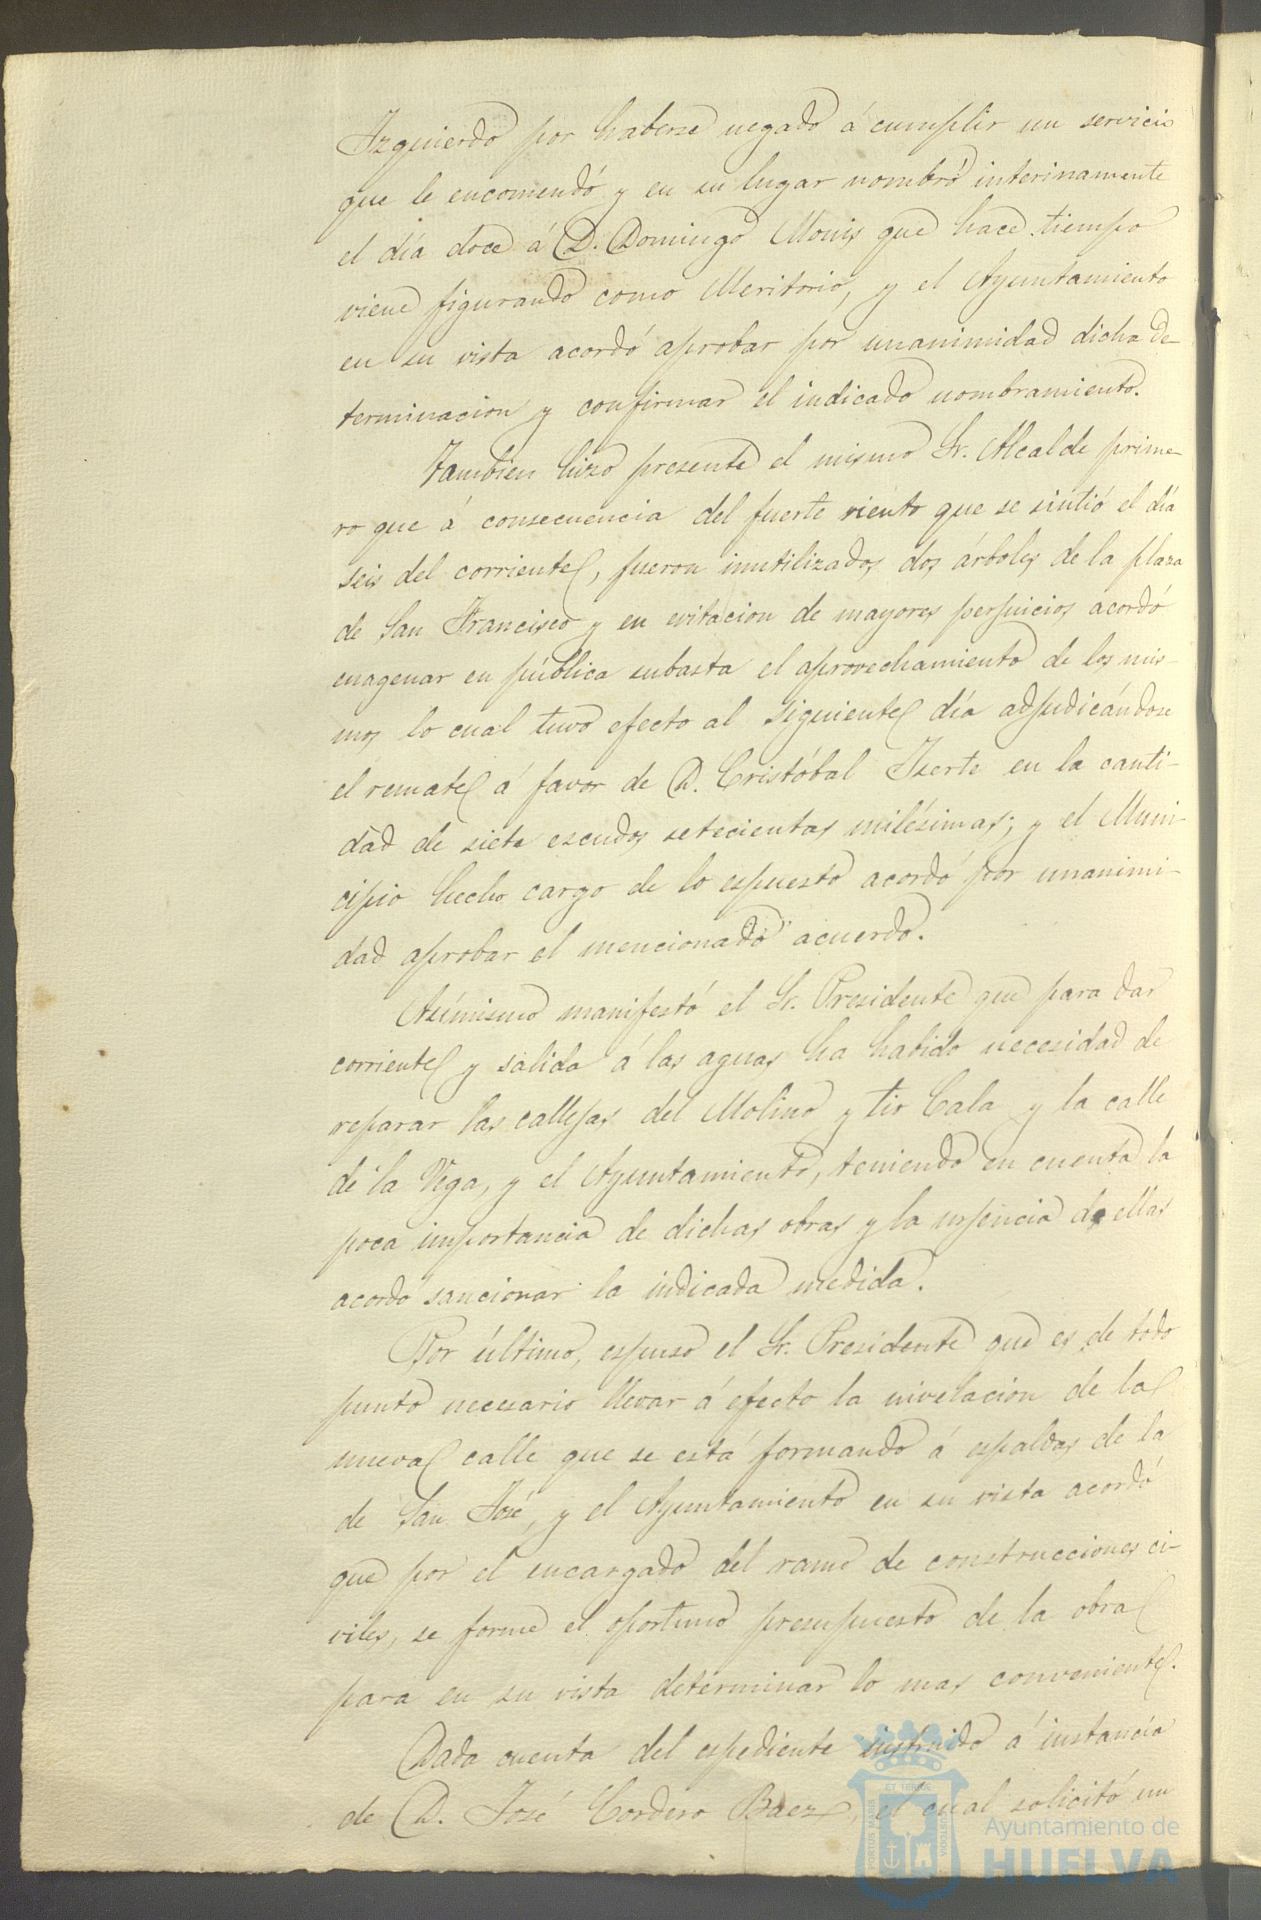 Izquierdo por haberse negado á cumplir un servicio
que le encomendó y en su lugar nombró interinamente
el día doce á D. Domingo Monis que hace tiempo
viene figurando como Meritorio, y el Ayuntamiento
en su vista acordó aprobar por unanimidad dicha de-
terminacion y confirmar el indicado nombramiento.
Tambien hizo presente el mismo Sr. Alcalde prime-
ro que á consecuencia del fuerte viento que se sintió el día
seis del corriente, fueron inutilizados dos árboles de la plaza
de San Francisco y en evitacion de mayores perjuicios acordó
enagenar en pública subasta el aprovechamiento de los mis-
mos lo cual tuvo efecto al siguiente día adjudicándose
el remate á favor de D. Cristóbal Iserte en la canti-
dad de siete escudos setecientas milésimas; y el Muni-
cipio hecho cargo de lo espuesto acordó por unanimi-
dad aprobar el mencionado acuerdo.
Asímismo manifestó el Sr. Presidente que para dar
corriente y salida á las aguas ha habido necesidad de
reparar las callejas del Molino y tio Cala y la calle
de la Vega, y el Ayuntamiento, teniendo en cuenta la
poca importancia de dichas obras y la urgencia de ellas
acordó sancionar la indicada medida.
Por último, espuso el Sr. Presidente que es de todo
punto necesario llevar á efecto la nivelacion de la
nueva calle que se está formando á espaldas de la
de San José, y el Ayuntamiento en su vista acordó
que por el encargado del ramo de construcciones ci-
viles, se forme el oportuno presupuesto de la obra
para en su vista determinar lo mas conveniente.
Dada cuenta del espediente instruido á instancia
de D. José Cordero Baez, el cual solicitó un
Ayuntamiento de
HUELVA